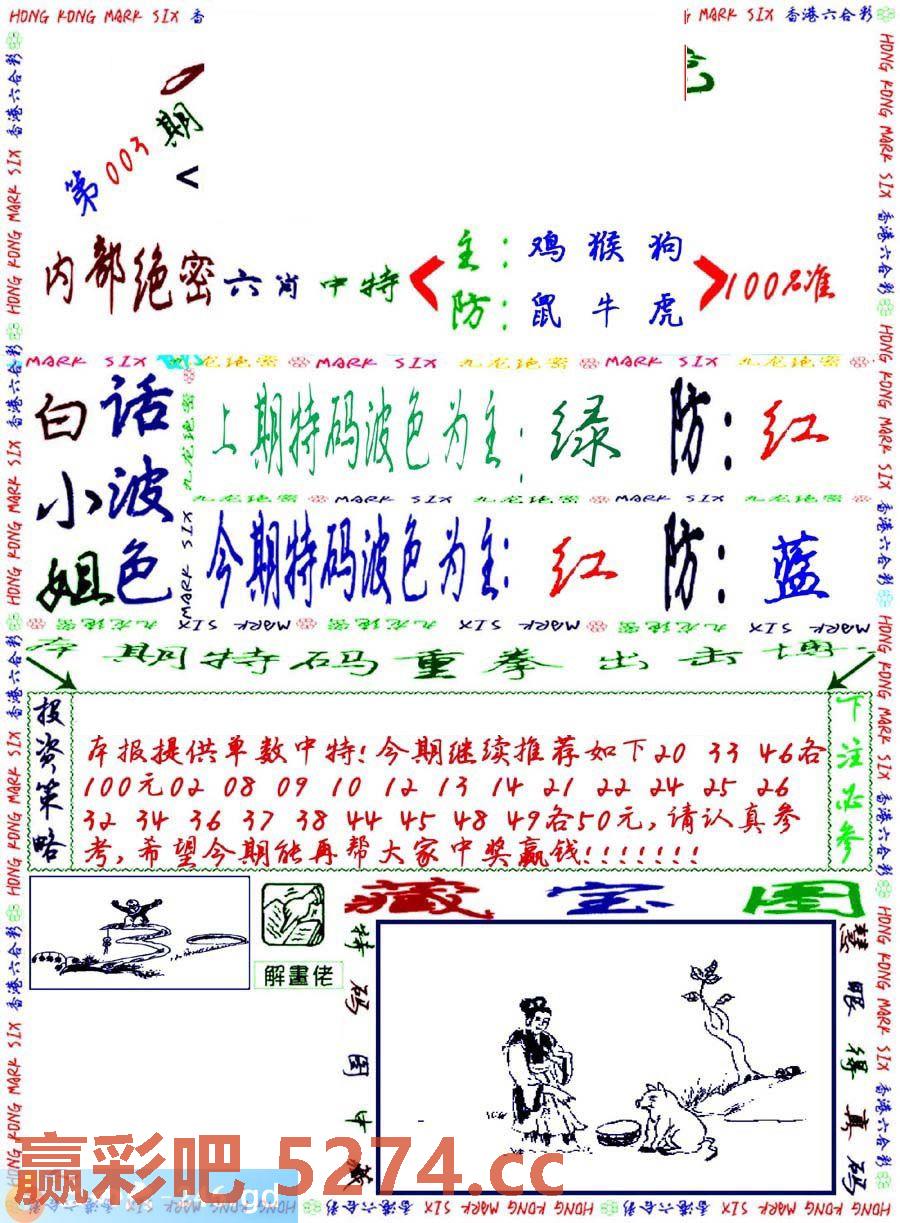 HONG KONG MARK SIX 香
MARK SIX 香港六合彩
第003期
内部绝密六肖中特
主:鸡猴狗
防:鼠牛虎
100%准
MARK SIX 九龙绝密 MARK SIX 九龙绝密 MARK SIX 九龙绝密
白话
小波
姐色
上期特码波色为主:绿 防:红
九龙绝密 MARK SIX 九龙绝密 MARK SIX 九龙绝密
今期特码波色为主:红 防:蓝
九龙绝密 MARK SIX 九龙绝密 MARK SIX 九龙绝密 MARK SIX
期特码重拳出击
投资策略
本报提供单数中特!今期继续推荐如下20 33 46各
100元02 08 09 10 12 13 14 21 22 24 25 26
32 34 36 37 38 44 45 48 49各50元,请认真参
考,希望今期能再帮大家中奖赢钱!!!!!!!
下注必参
藏宝图
解畫佬
特码图中藏
慧眼得真码
赢彩吧 5274.cc
HONG KONG MARK SIX 香港六合彩